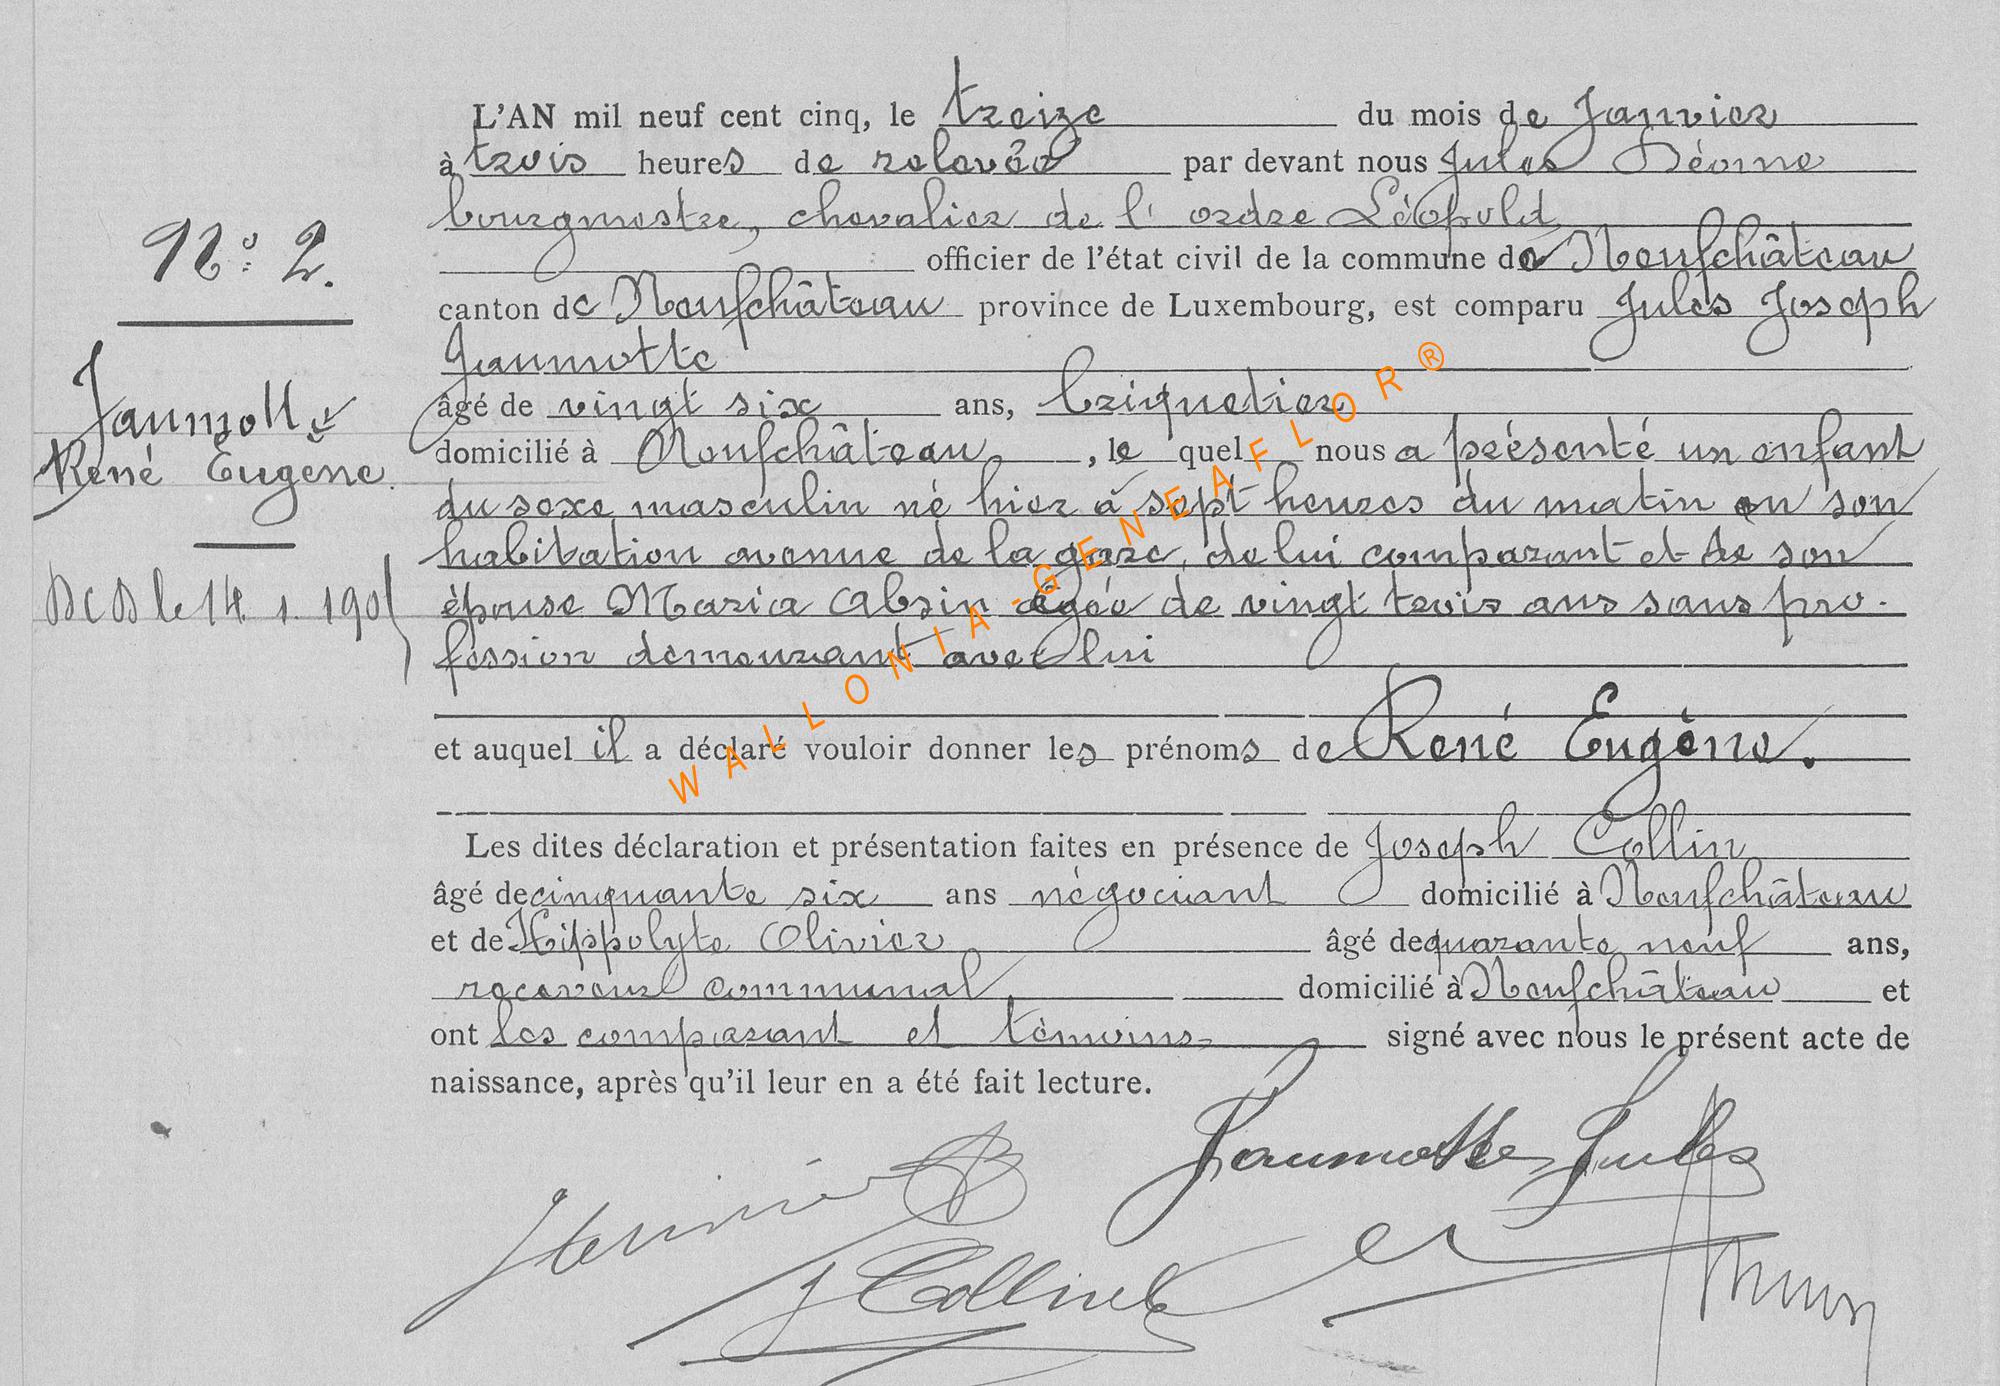 L'AN mil neuf cent cinq, le treize du mois de Janvier
à trois heures de relevée par devant nous Jules
bourgmestre, chevalier de l'ordre Léopold
officier de l'état civil de la commune de Neufchâteau
canton de Neufchâteau province de Luxembourg, est comparu Jules Joseph
Jaumotte
âgé de vingt six ans, briquetier
domicilié à Neufchâteau, le quel nous a présenté un enfant
du sexe masculin né hier à sept heures du matin en son
habitation avenue de la gare, de lui comparant et de son
épouse Maria Absin âgée de vingt trois ans sans pro-
fession demeurant avec lui
et auquel il a déclaré vouloir donner les prénoms de René Eugène.
Les dites déclaration et présentation faites en présence de Joseph Collin
âgé de cinquante six ans négociant domicilié à Neufchâteau
et de Hippolyte Olivier âgé de quarante neuf ans,
receveur communal, domicilié à Neufchâteau et
ont les comparant et témoins signé avec nous le présent acte de
naissance, après qu'il leur en a été fait lecture.
N° 2.
Jaumotte
René Eugène
DCD le 14 1. 1905
Jaumotte Jules
J Collin
WALLONIA-GENEAFLOR®